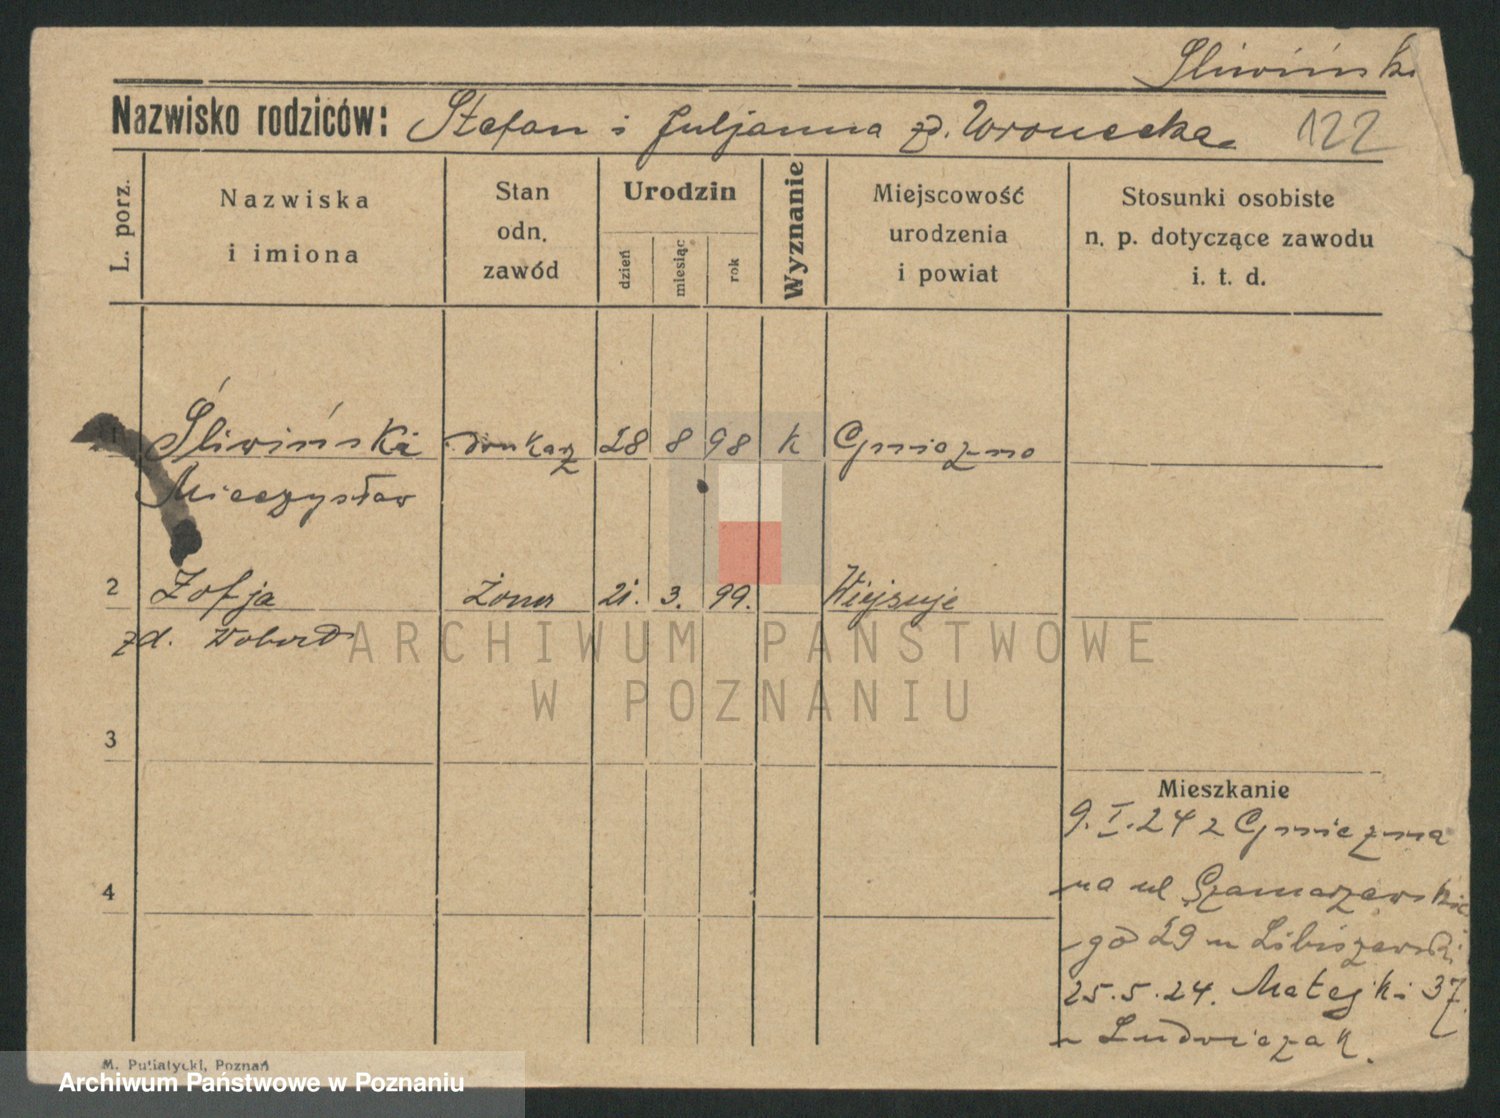 Śliwiński
Nazwisko rodziców: Stefan i Juljanna zd. Wronecka 122
L. porz.
Nazwiska
i imiona
Stan
odn.
zawód
Urodzin
dzień
miesiąc
rok
Wyznanie
Miejscowość
urodzenia
i powiat
Stosunki osobiste
n. p. dotyczące zawodu
i. t. d.
1 Śliwiński drukarz 28 8 98 k Gniezno
Mieczysław
2 Zofja żona 21. 3. 99.
zd.
ARCHIWUM PAŃSTWOWE
W POZNANIU
3
Mieszkanie
9.I.24 z Gniezna
4
na ul Szamarzewskie
-go 29 u Libiszewski
25.5.24. Matejki 37
u Ludwiczak.
M. Putiatycki, Poznań
Archiwum Państwowe w Poznaniu